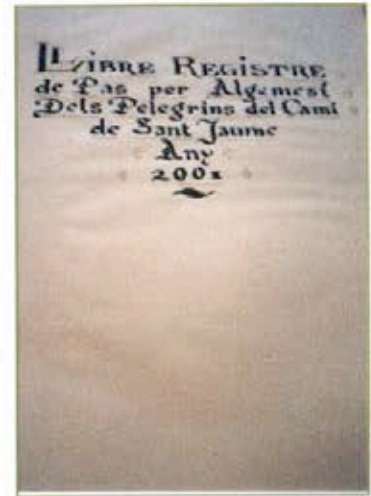 LLIBRE REGISTRE
de Pas per Algemesí
Dels Pelegrins del Camí
de Sant Jaume
Any
200x